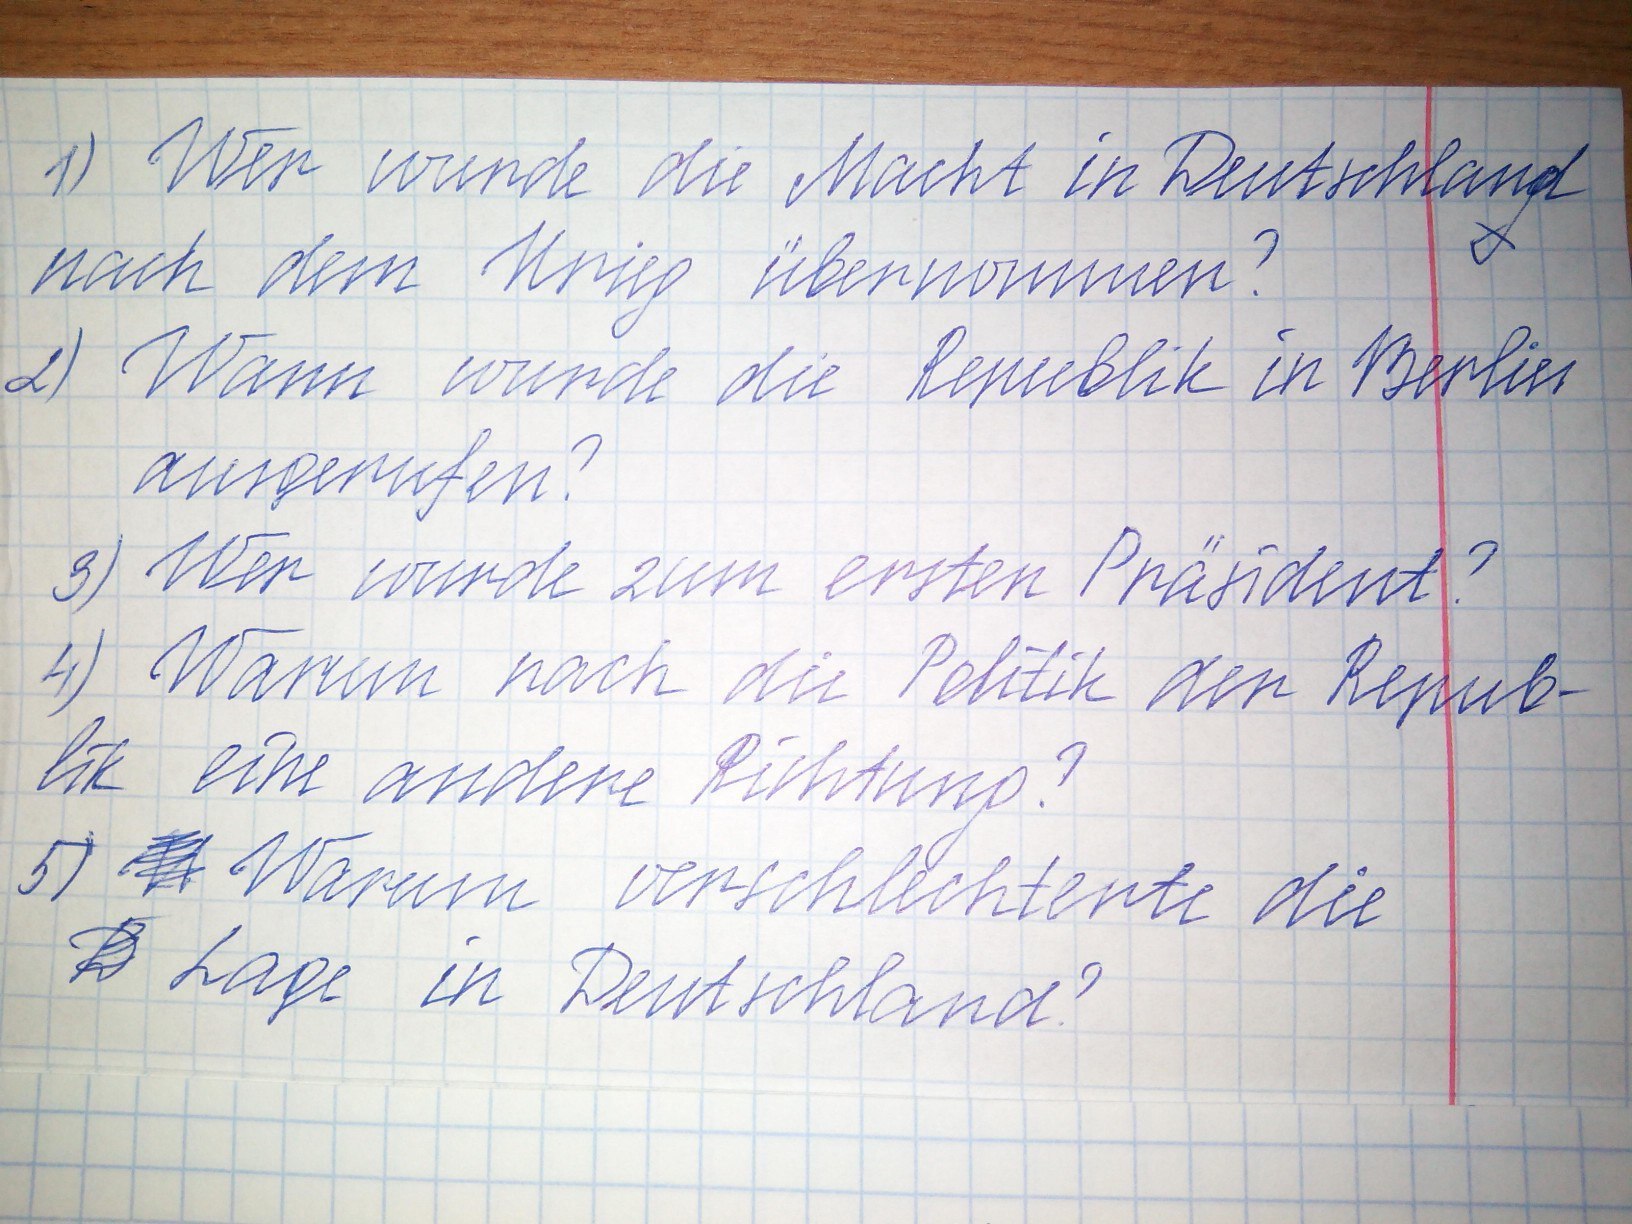 1) Wer wurde die Macht in Deutschland
nach dem Krieg übernommen?
2) Wann wurde die Republik in Berlin
ausgerufen?
3) Wer wurde zum ersten Präsident?
4) Warum nach die Politik der Repub-
lik eine andere Richtung?
5) Warum verschlechterte die
Lage in Deutschland?